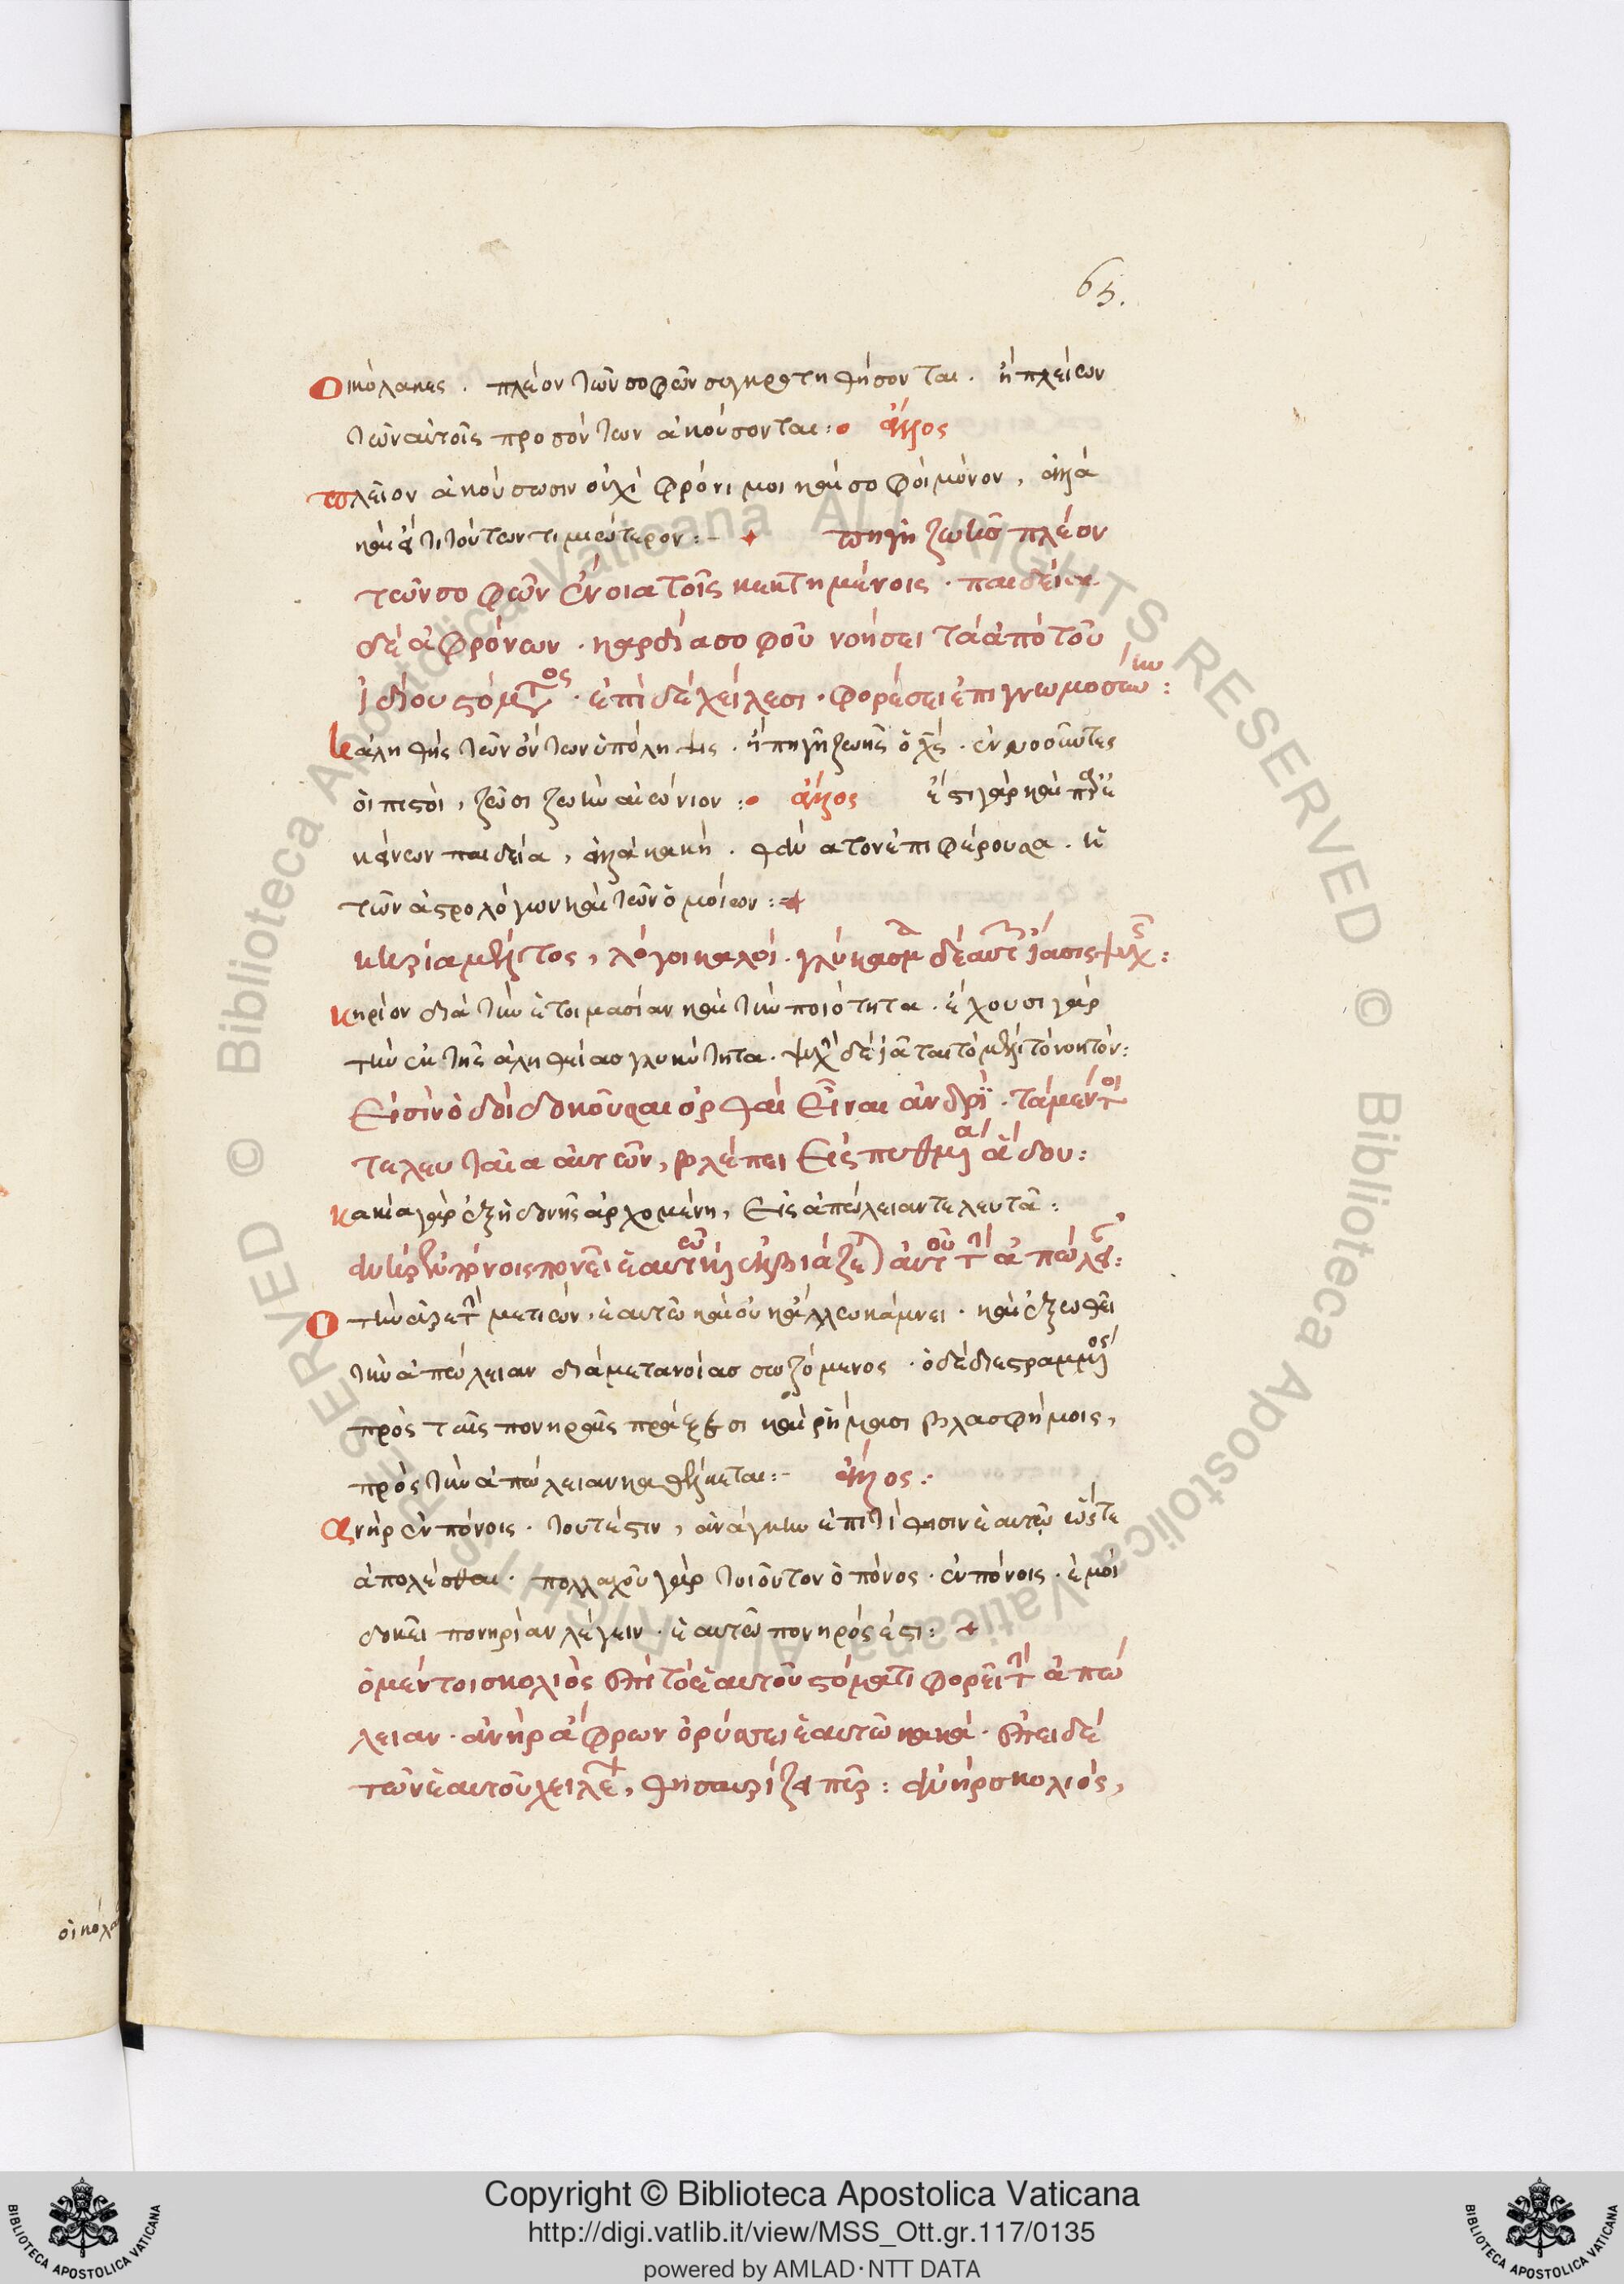 65.
Οἱ κόλακες. πλέον τῶν σοφῶν συγκροτηθήσονται. ἢ πλείων
τῶν αὐτοῖς προσόντων ἀκούσονται: ἄλλος
πλεῖον ἀκούσωσιν οὐχὶ φρόνιμοι καὶ σοφοὶ μόνον, ἀλλὰ
καὶ τούτων τιμιώτερον:- πηγὴ ζωῆς πλέον
τῶν σοφῶν ἔννοια τοῖς κεκτημένοις. παιδεία
δὲ ἀφρόνων. καρδία σοφοῦ νοήσει τὰ ἀπὸ τοῦ
ἰδίου στόματος. ἐπὶ δὲ χείλεσι. φορέσει ἐπιγνωμοσύνην:
Ἡ ἀληθὴς τῶν ὄντων ὑπόληψις. ἢ πηγὴ ζωῆς ὁ χς.
οἱ πιστοί, ζῶσι ζωὴν αἰώνιον: ἄλλος ἔστι γὰρ καὶ
παιδεία, ἀλλὰ κακή. θάνατον ἐπιφέρουσα. ἡ
τῶν ἀστρολόγων καὶ τῶν ὁμοίων:
κηρία μέλιτος, λόγοι καλοί. γλύκασμα δὲ αὐτῶν ἴασις ψυχῆς:
Κηρίον διὰ τὴν ἑτοιμασίαν καὶ τὴν ποιότητα. ἔχουσι γὰρ
τὴν ἐκ τῆς ἀληθείας γλυκύτητα. ψυχὴ δὲ ἰᾶται τὸ μέλι τὸ νοητόν:
Εἰσὶν ὁδοὶ δοκοῦσαι ὀρθαὶ εἶναι ἀνδρί. τὰ μέντοι
τελευταῖα αὐτῶν, βλέπει εἰς πυθμένα ᾅδου:
Κακία γὰρ ἐξ ἡδονῆς ἀρχομένη, εἰς ἀπώλειαν τελευτᾶ:
ἀνὴρ ἐν πόνοις πονεῖ ἑαυτῷ καὶ ἐκβιάζεται αὐτοῦ τὴν ἀπώλειαν:
Ὁ τὴν ἀρετὴν μετιών, ἑαυτῷ καὶ οὐκ ἄλλῳ κάμνει. καὶ ἐξωθεῖ
τὴν ἀπώλειαν διὰ μετανοίας σωζόμενος. ὁ δὲ διεστραμμένος
πρὸς ταῖς πονηραῖς πράξεσι καὶ ῥήμασι βλασφήμοις,
πρὸς τὴν ἀπώλειαν καθέλκεται:- ἄλλος:
Ἀνὴρ ἐν πόνοις. τουτέστιν, ἀνάγκην ἐπιτίθησιν ἑαυτῷ ὥστε
ἀπολέσθαι. πολλαχοῦ γὰρ τοιοῦτον ὁ πόνος. ἐν πόνοις. ἐμοὶ
δοκεῖ πονηρίαν λέγειν. ἑαυτῷ πονηρός ἐστι:
ὁ μέντοι σκολιὸς ἐπὶ τῷ ἑαυτοῦ στόματι φορεῖ τὴν ἀπώ
λειαν. ἀνὴρ ἄφρων ὀρύσσει ἑαυτῷ κακά. ἐπεὶ δὲ
τῶν ἑαυτοῦ χειλέων, θησαυρίζει πῦρ: ἀνὴρ σκολιός,
οἱ κόλα
Copyright © Biblioteca Apostolica Vaticana
http://digi.vatlib.it/view/MSS_Ott.gr.117/0135
powered by AMLAD·NTT DATA
BIBLIOTECA APOSTOLICA VATICANA
BIBLIOTECA APOSTOLICA VATICANA
© Biblioteca Apostolica Vaticana ALL RIGHTS RESERVED © Biblioteca Apostolica Vaticana ALL RIGHTS RESERVED